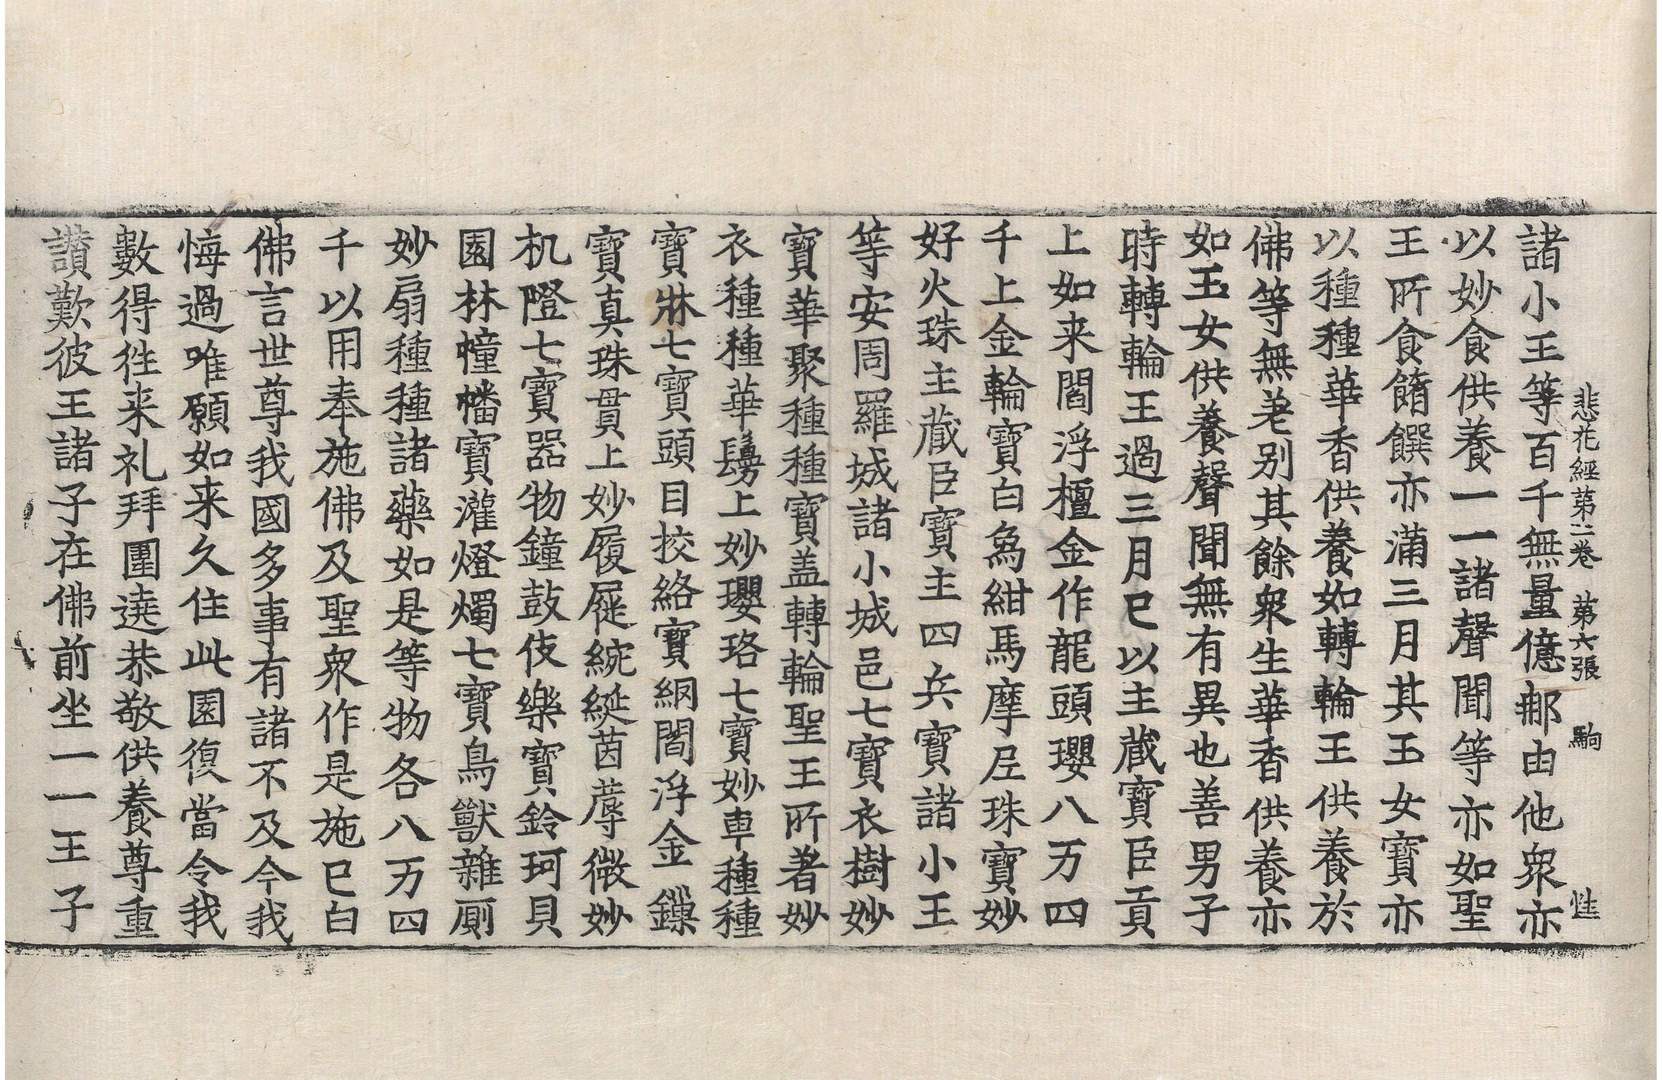 悲花經第二卷　第六張　駒
諸小王等百千無量億那由他衆亦
以妙食供養一一諸聲聞等亦如聖
王所食餚饌亦滿三月其玉女寶亦
以種種華香供養如轉輪王供養於
佛等無差別其餘衆生華香供養亦
如玉女供養聲聞無有異也善男子
時轉輪王過三月已以主蔵寶臣貢
上如来閻浮檀金作龍頭瓔八万四
千上金輪寶白烏紺馬摩尼珠寶妙
好火珠主蔵臣寶主四兵寶諸小王
等安周羅城諸小城邑七寶衣樹妙
寶華聚種種寶盖轉輪聖王所著妙
衣種種華鬘上妙瓔珞七寶妙車種種
寶牀七寶頭目挍絡寶網閻浮金鏁
寶真珠貫上妙履屣綩綖茵蓐微妙
机隥七寶器物鐘鼓伎樂寶鈴珂貝
園林幢幡寶灌燈燭七寶鳥獸雜厠
妙扇種種諸藥如是等物各八万四
千以用奉施佛及聖衆作是施已白
佛言世尊我國多事有諸不及今我
悔過唯願如来久住此園復當令我
數得往来礼拜圍遶恭敬供養尊重
讃歎彼王諸子在佛前坐一一王子